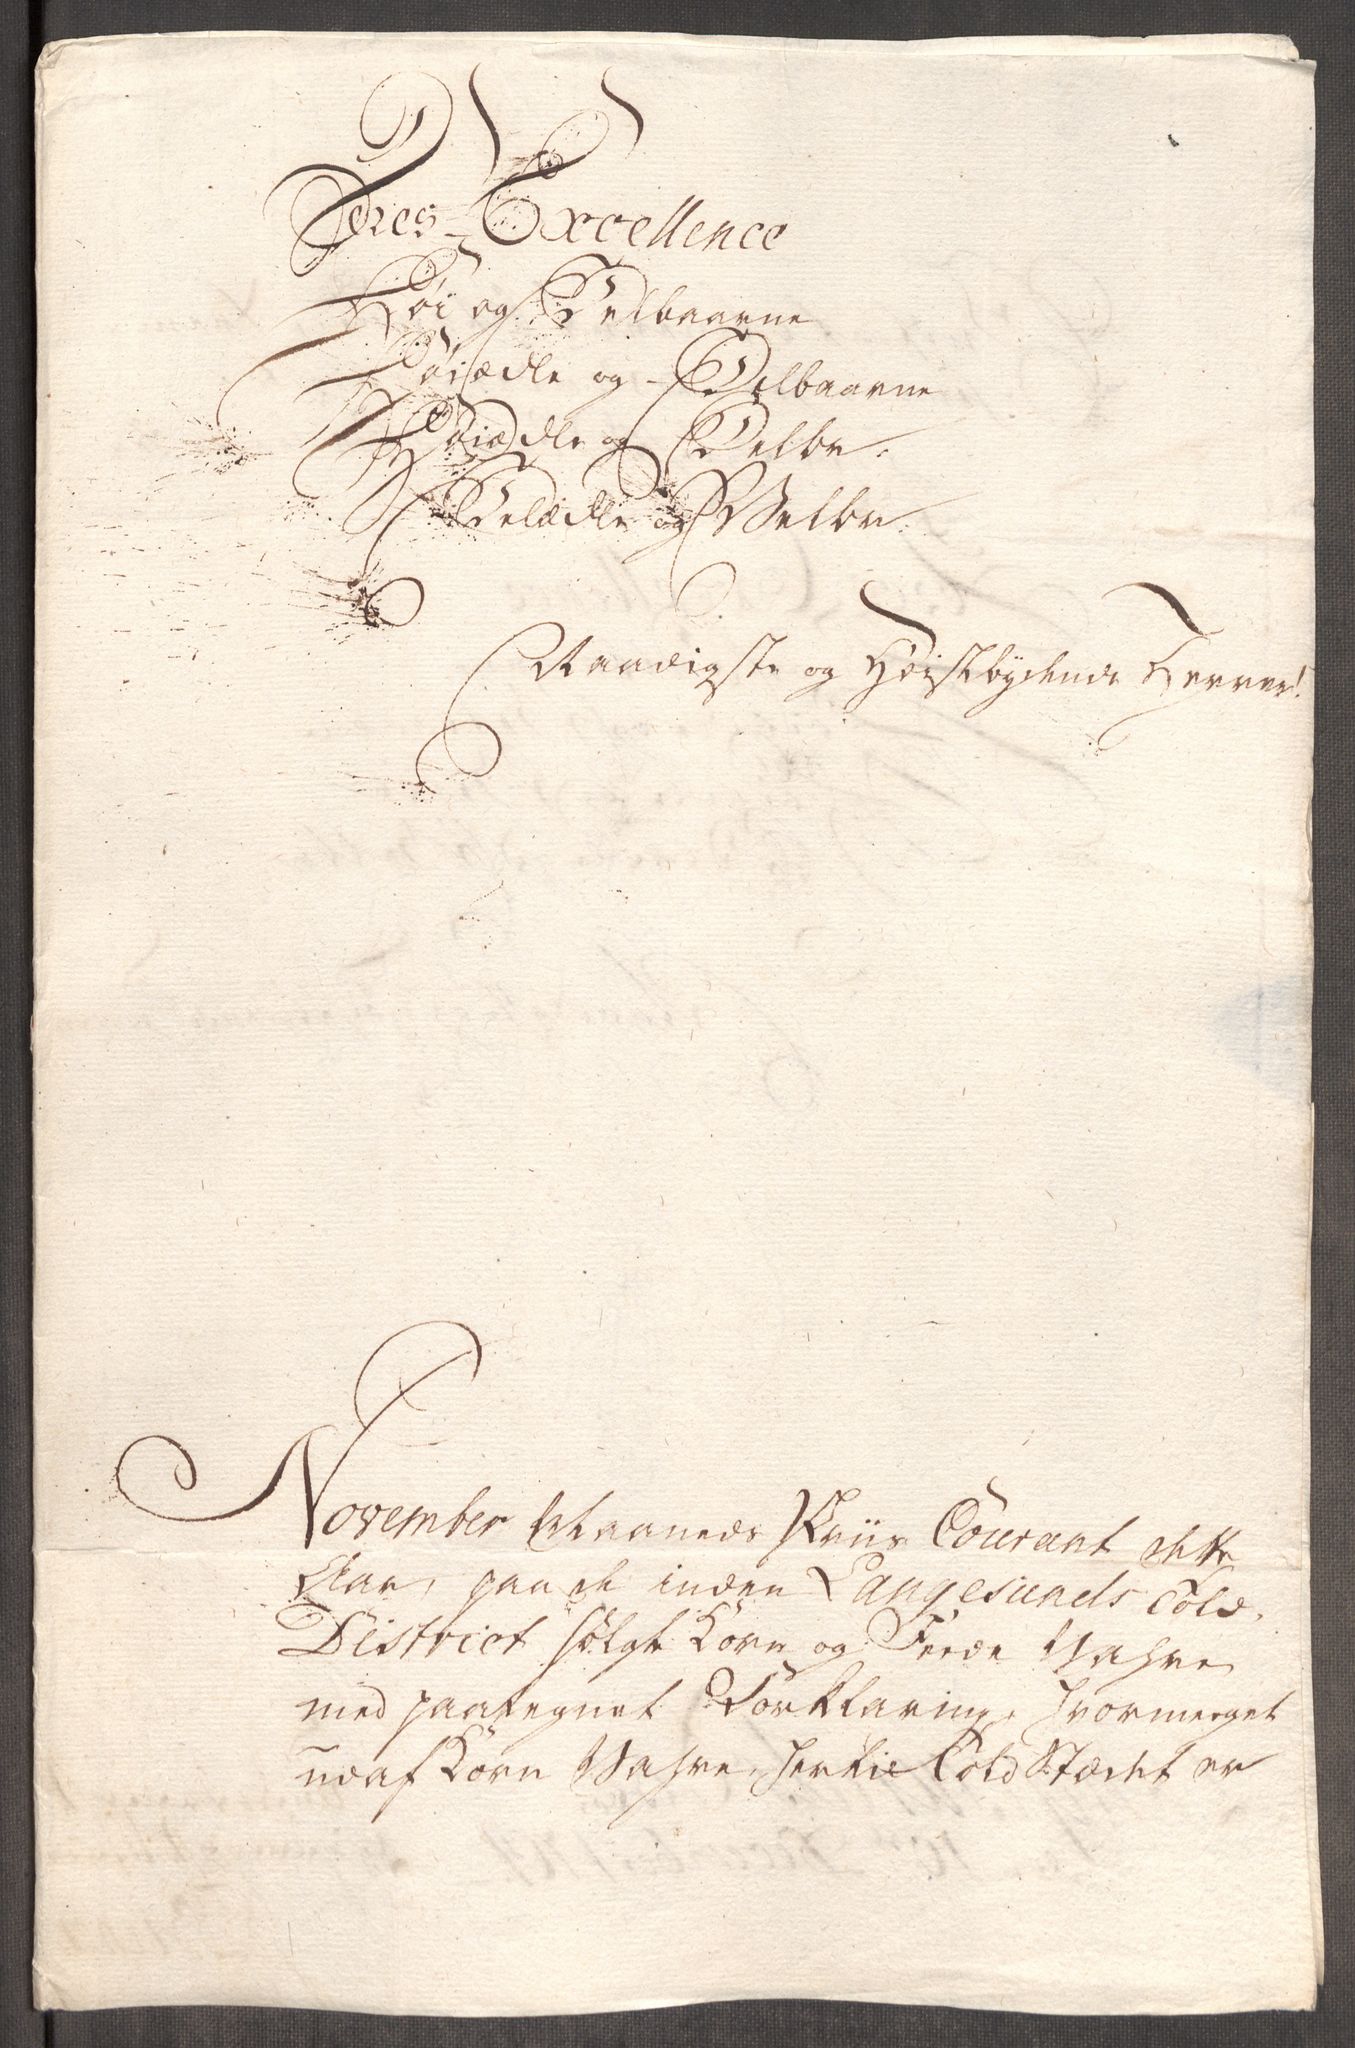 Deres Excellence
Høi og Velbaarne
Høiædle og Velbaarne
Høiædle og Velbr.
Velædle og Velbr.
Naadigste og Høistbydende Herrer!
November Maaneds Priis Courant dette
Aar, paa de inden Langesunds Told
District sølgte Korn og Fede Vahre,
med paategnet Forklaring, hvormeget
udaf Korn Vahre, her til Toldstædet er